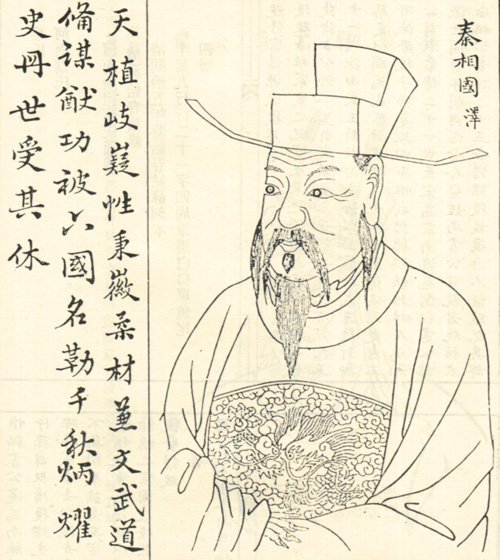 秦相國澤
天植岐嶷性秉徽柔材兼文武道
俻謀猷功被六國名勒千秋炳燿
史冊世受其休